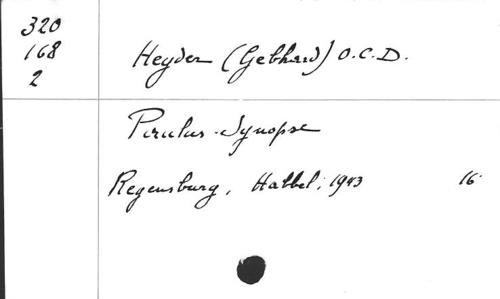 320
168
2
Heyder (Gebhard) O.C.D.
Paulus-Synopse
Regensburg, Habbel, 1943 16